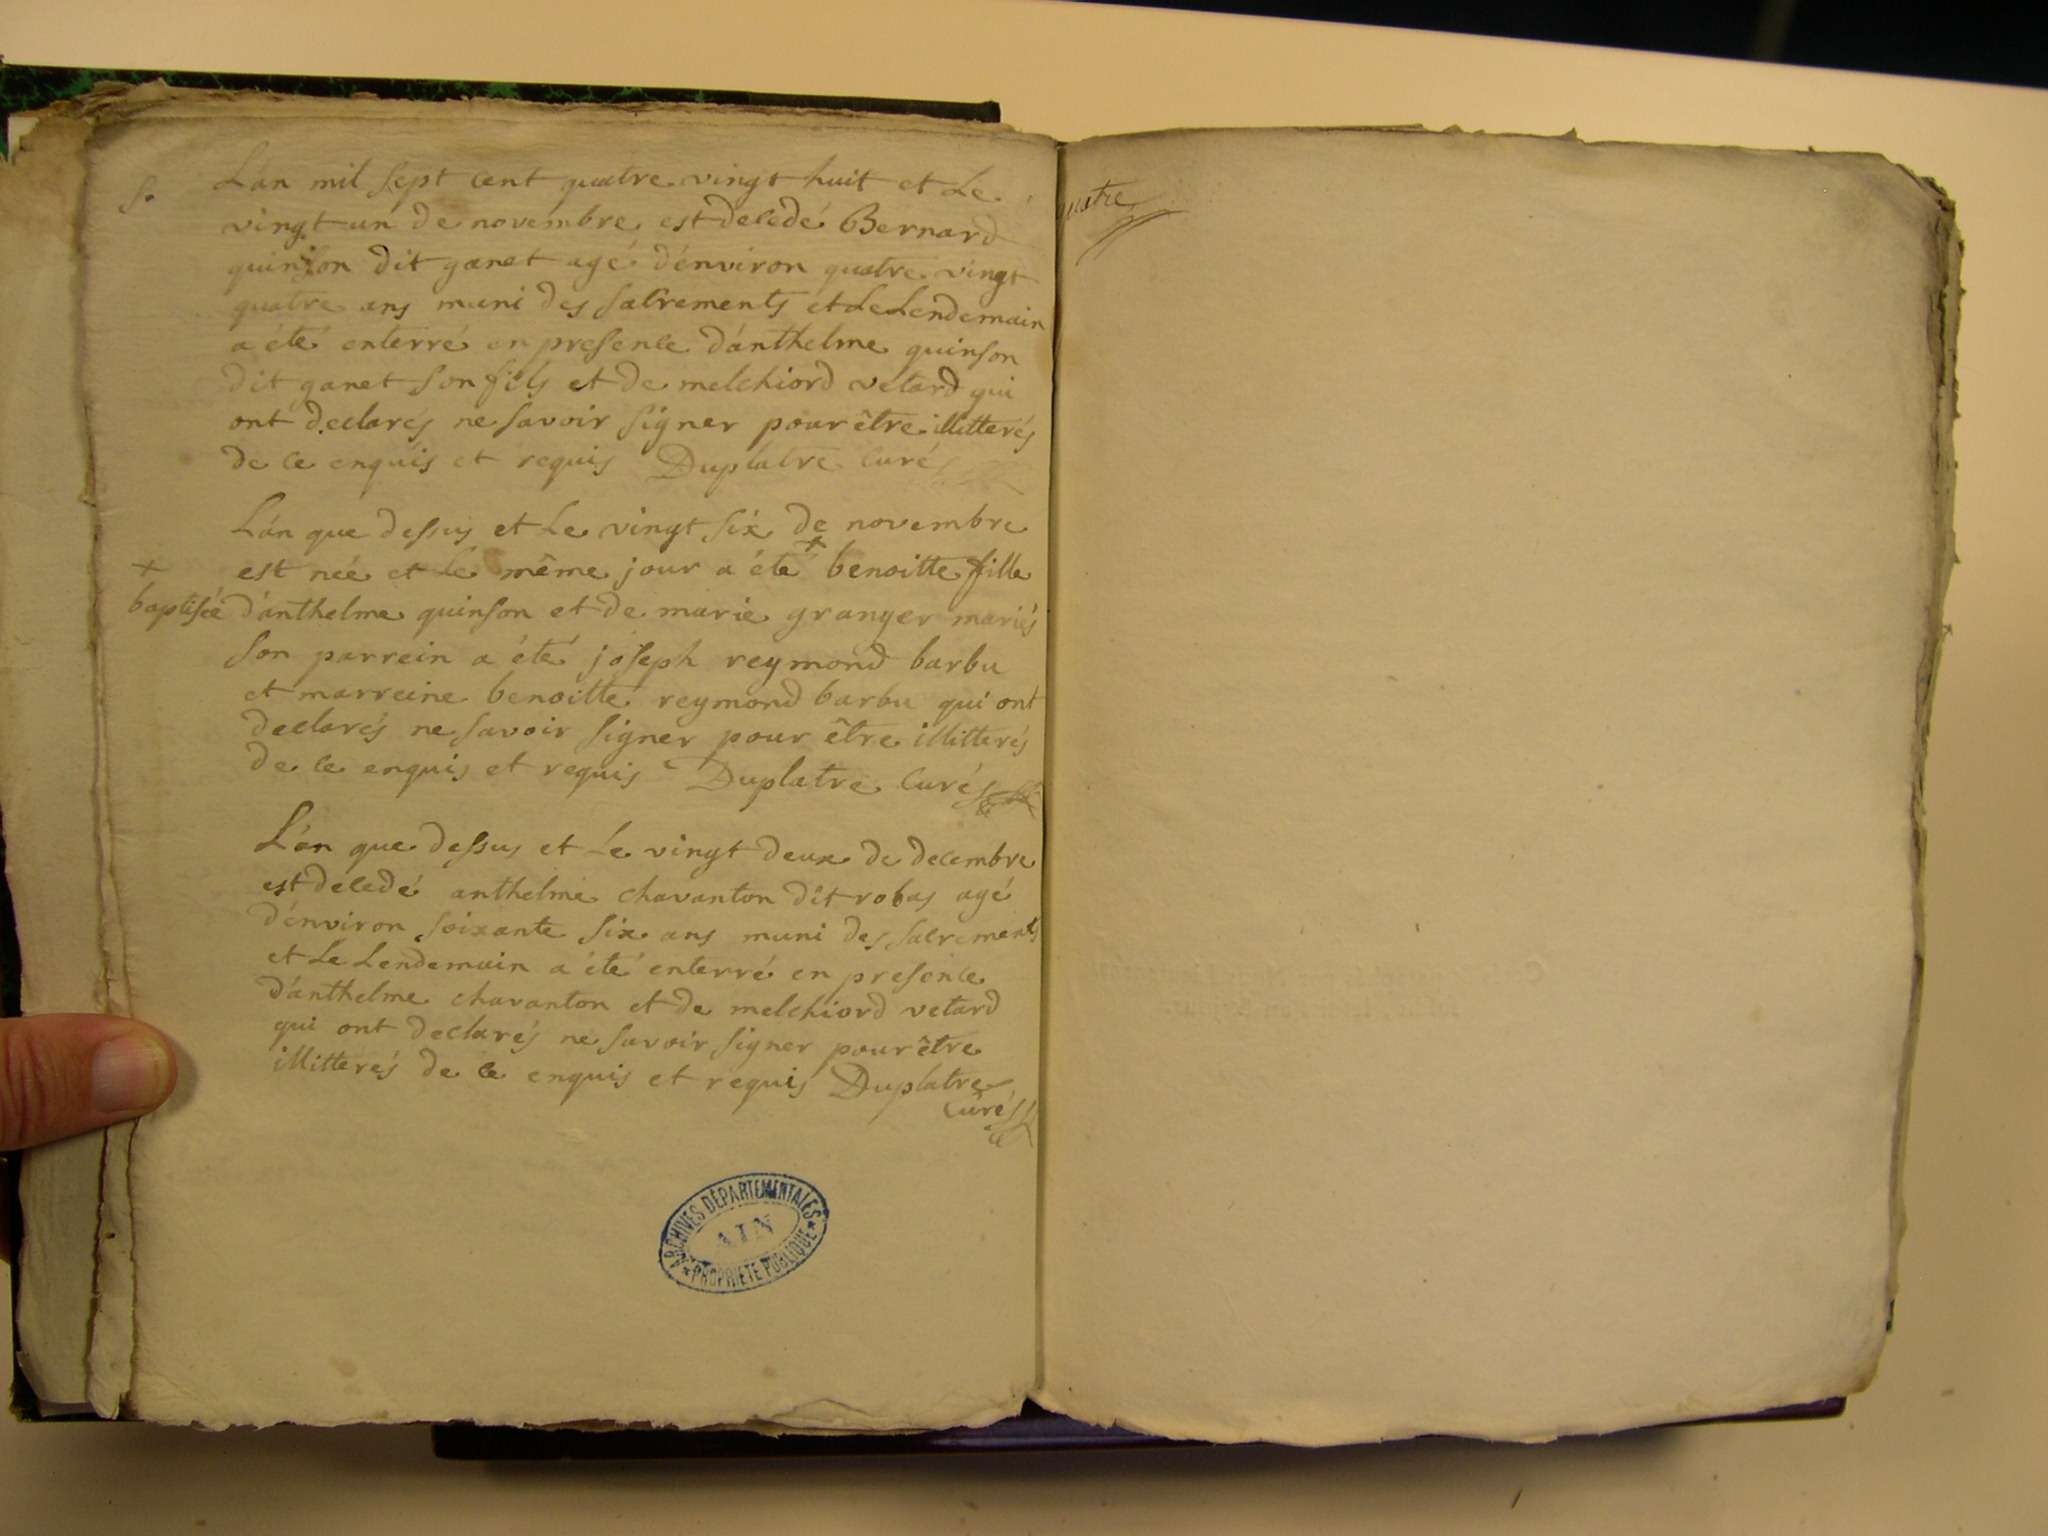 S.
Lan mil sept cent quatre vingt huit et Le
vingt un de novembre est decedé Bernard
quinson dit ganet agé d'environ quatre vingt
quatre ans muni des sacrements et Le Lendemain
a été enterré en presence d'anthelme quinson
dit ganet son fils et de melchiord vetard qui
ont declarés ne savoir signer pour être illitterés
de ce enquis et requis Duplatre Curé
L'an que dessus et Le vingt six de novembre
+ est neé et Le même jour a été + benoitte fille
baptisée d'anthelme quinson et de marie granger mariés
son parrein a été joseph reymond barbu
et marreine benoitte reymond barbu qui ont
declarés ne savoir signer pour être illitterés
de ce enquis et requis Duplatre Curé
L'an que dessus et Le vingt deux de decembre
est decedé anthelme chavanton dit robas agé
d'environ soixante six ans muni des sacrements
et Le Lendemain a été enterré en presence
d'anthelme chavanton et de melchiord vetard
qui ont declarés ne savoir signer pour être
illitterés de ce enquis et requis Duplatre
Curé
ARCHIVES DÉPARTEMENTALES
AIN
PROPRIÉTÉ PUBLIQUE
quatre